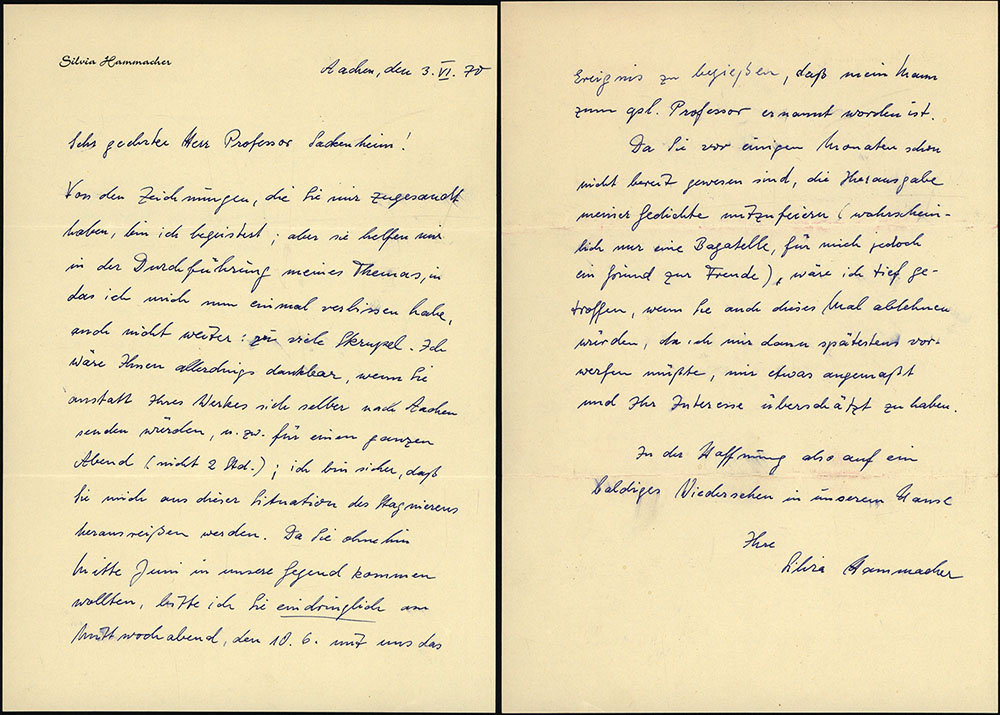 Silvia Hammacher
Aachen, den 3. VI. 70
Sehr geehrter Herr Professor Sackenheim!
Von den Zeichnungen, die Sie mir zugesandt
haben, bin ich begeistert; aber sie helfen mir
in der Durchführung meines Themas, in
das ich mich nun einmal verbissen habe,
auch nicht weiter: zu viele Skrupel. Ich
wäre Ihnen allerdings dankbar, wenn Sie
anstatt Ihres Werkes sich selber nach Aachen
senden würden, u. zw. für einen ganzen
Abend (nicht 2 Std.); ich bin sicher, daß
Sie mich aus dieser Situation des Stagnierens
herausreißen werden. Da Sie ohnehin
Mitte Juni in unsere Gegend kommen
wollten, bitte ich Sie eindringlich am
Mittwochabend, den 10. 6. mit uns das
Ereignis zu begießen, daß mein Mann
zum apl. Professor ernannt worden ist.
Da Sie vor einigen Monaten schon
nicht bereit gewesen sind, die Herausgabe
meiner Gedichte mitzufeiern (wahrschein-
lich nur eine Bagatelle, für mich jedoch
ein Grund zur Freude), wäre ich tief ge-
troffen, wenn Sie auch dieses Mal ablehnen
würden, da ich mir dann spätestens vor-
werfen müßte, mir etwas angemaßt
und Ihr Interesse überschätzt zu haben.
In der Hoffnung also auf ein
baldiges Wiedersehen in unserem Hause
Ihre
Silvia Hammacher